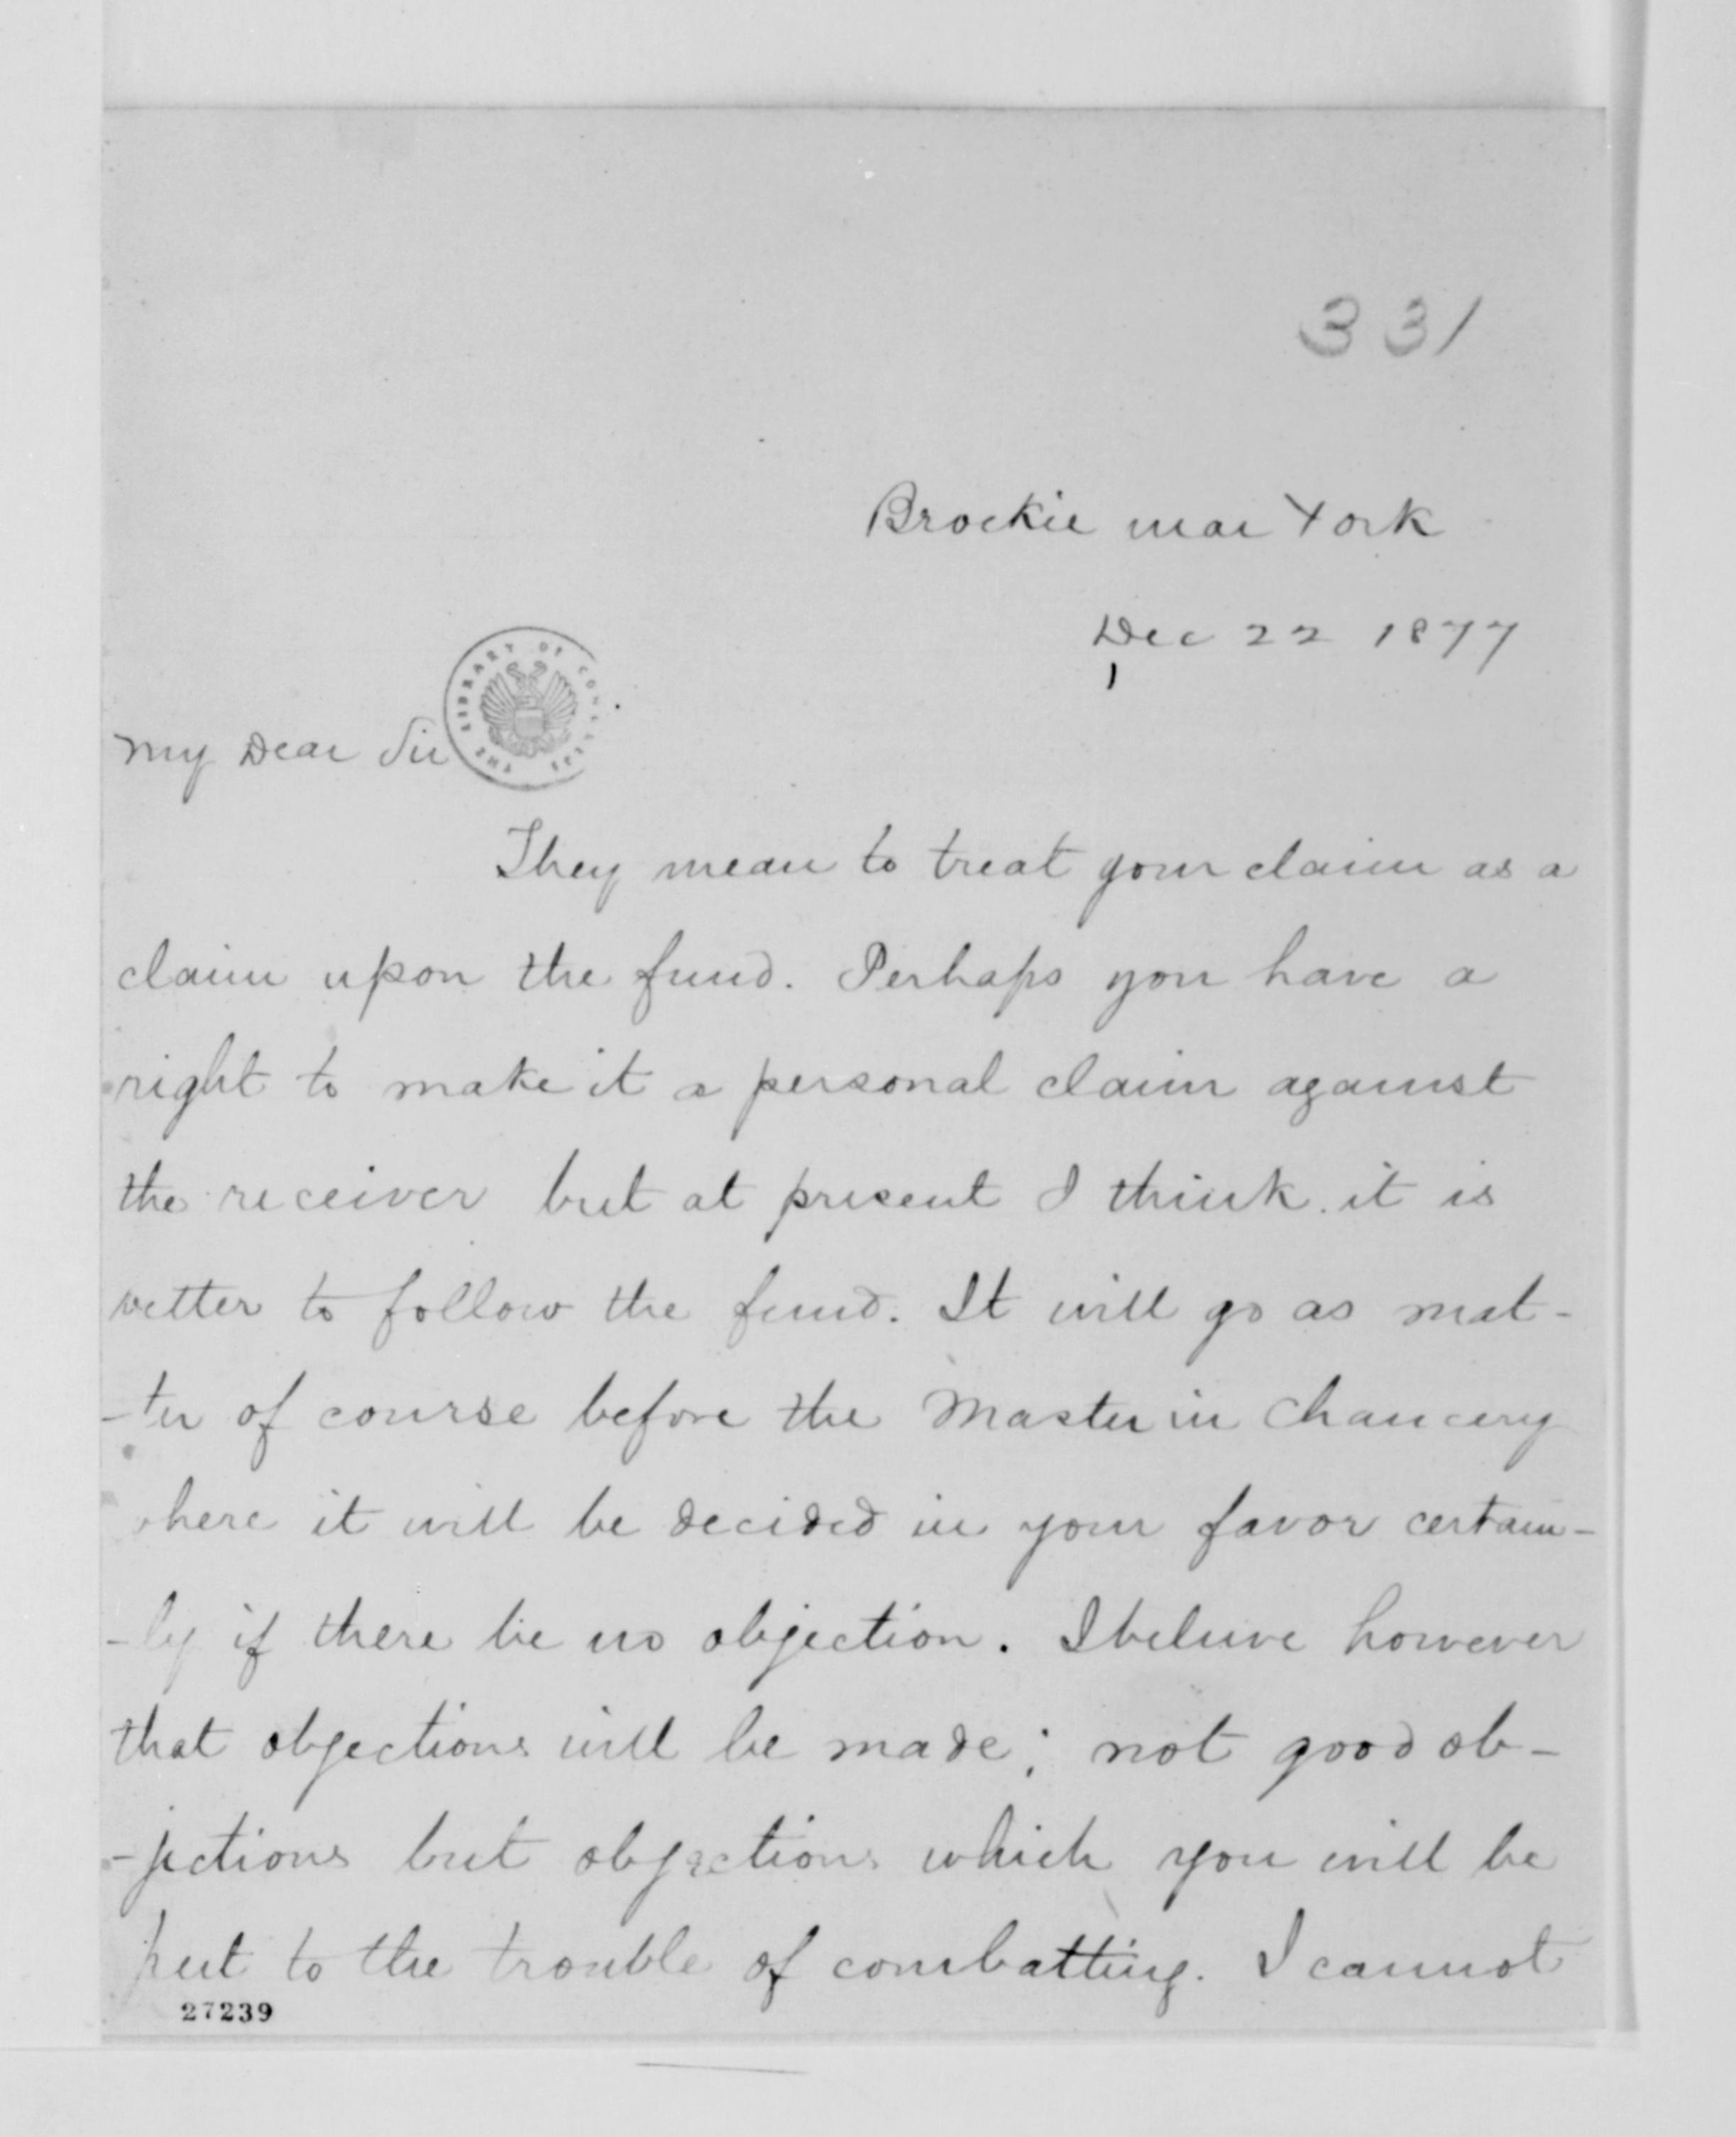 331
Brockie near York
Dec 22 1877
THE LIBRARY OF CONGRESS
My Dear Sir
They mean to treat your claim as a
claim upon the fund. Perhaps you have a
right to make it a personal claim against
the receiver but at present I think it is
better to follow the fund. It will go as mat-
-ter of course before the Master in Chancery
where it will be decided in your favor certain-
-ly if there be no objection. I believe however
that objections will be made; not good ob-
-jections but objections which you will be
put to the trouble of combatting. I cannot
27239